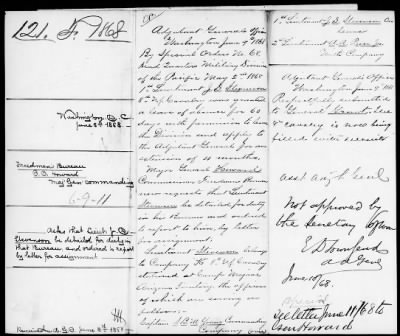 121. F. 1868
Washington D.C.
June 8th 1868.
Freedmen Bureau
O.O. Howard
Maj Gen commanding
6-9-11
Asks that Lieut. J. Q.
Stevenson be detailed for duty in
that Bureau, and ordered to report by
letter for assignment.
Received A.G.O. June 8th 1868
Adjutant General's Office
Washington June 9 1868
By Special Orders No 68
Head Quarters Military Division
of the Pacific May 2d 1868
1st Lieutenant Stevenson
8th Cavalry was granted
a leave of absence for 60
days with permission to leave
the Division and apply to
the Adjutant General for an
extension of 4 months.
Major General Howard
Commissioner Freedmens Bureau
now requests that Lieutenant
Stevenson be detailed for duty
in his Bureau and ordered
to report to him, by letter
for assignment.
Lieutenant Stevenson belongs
to Company 8th Cavalry
stationed at Camp
Arizona Territory the officers
of which are
follows:
Captain S.B.M. Young Commanding
Company
1st Lieutenant Stevenson On
leave
2d Lieutenant
with Company
Adjutant General's Office
Washington June 9 1868
Respectfully submitted
to General Grant. The
8th cavalry is now being
filled with recruits
Asst Adj't Genl
Not approved by
the Secretary of War
E D Townsend
A A Genl
June 10/
68.
See letter June 11/68 to
Genl Howard